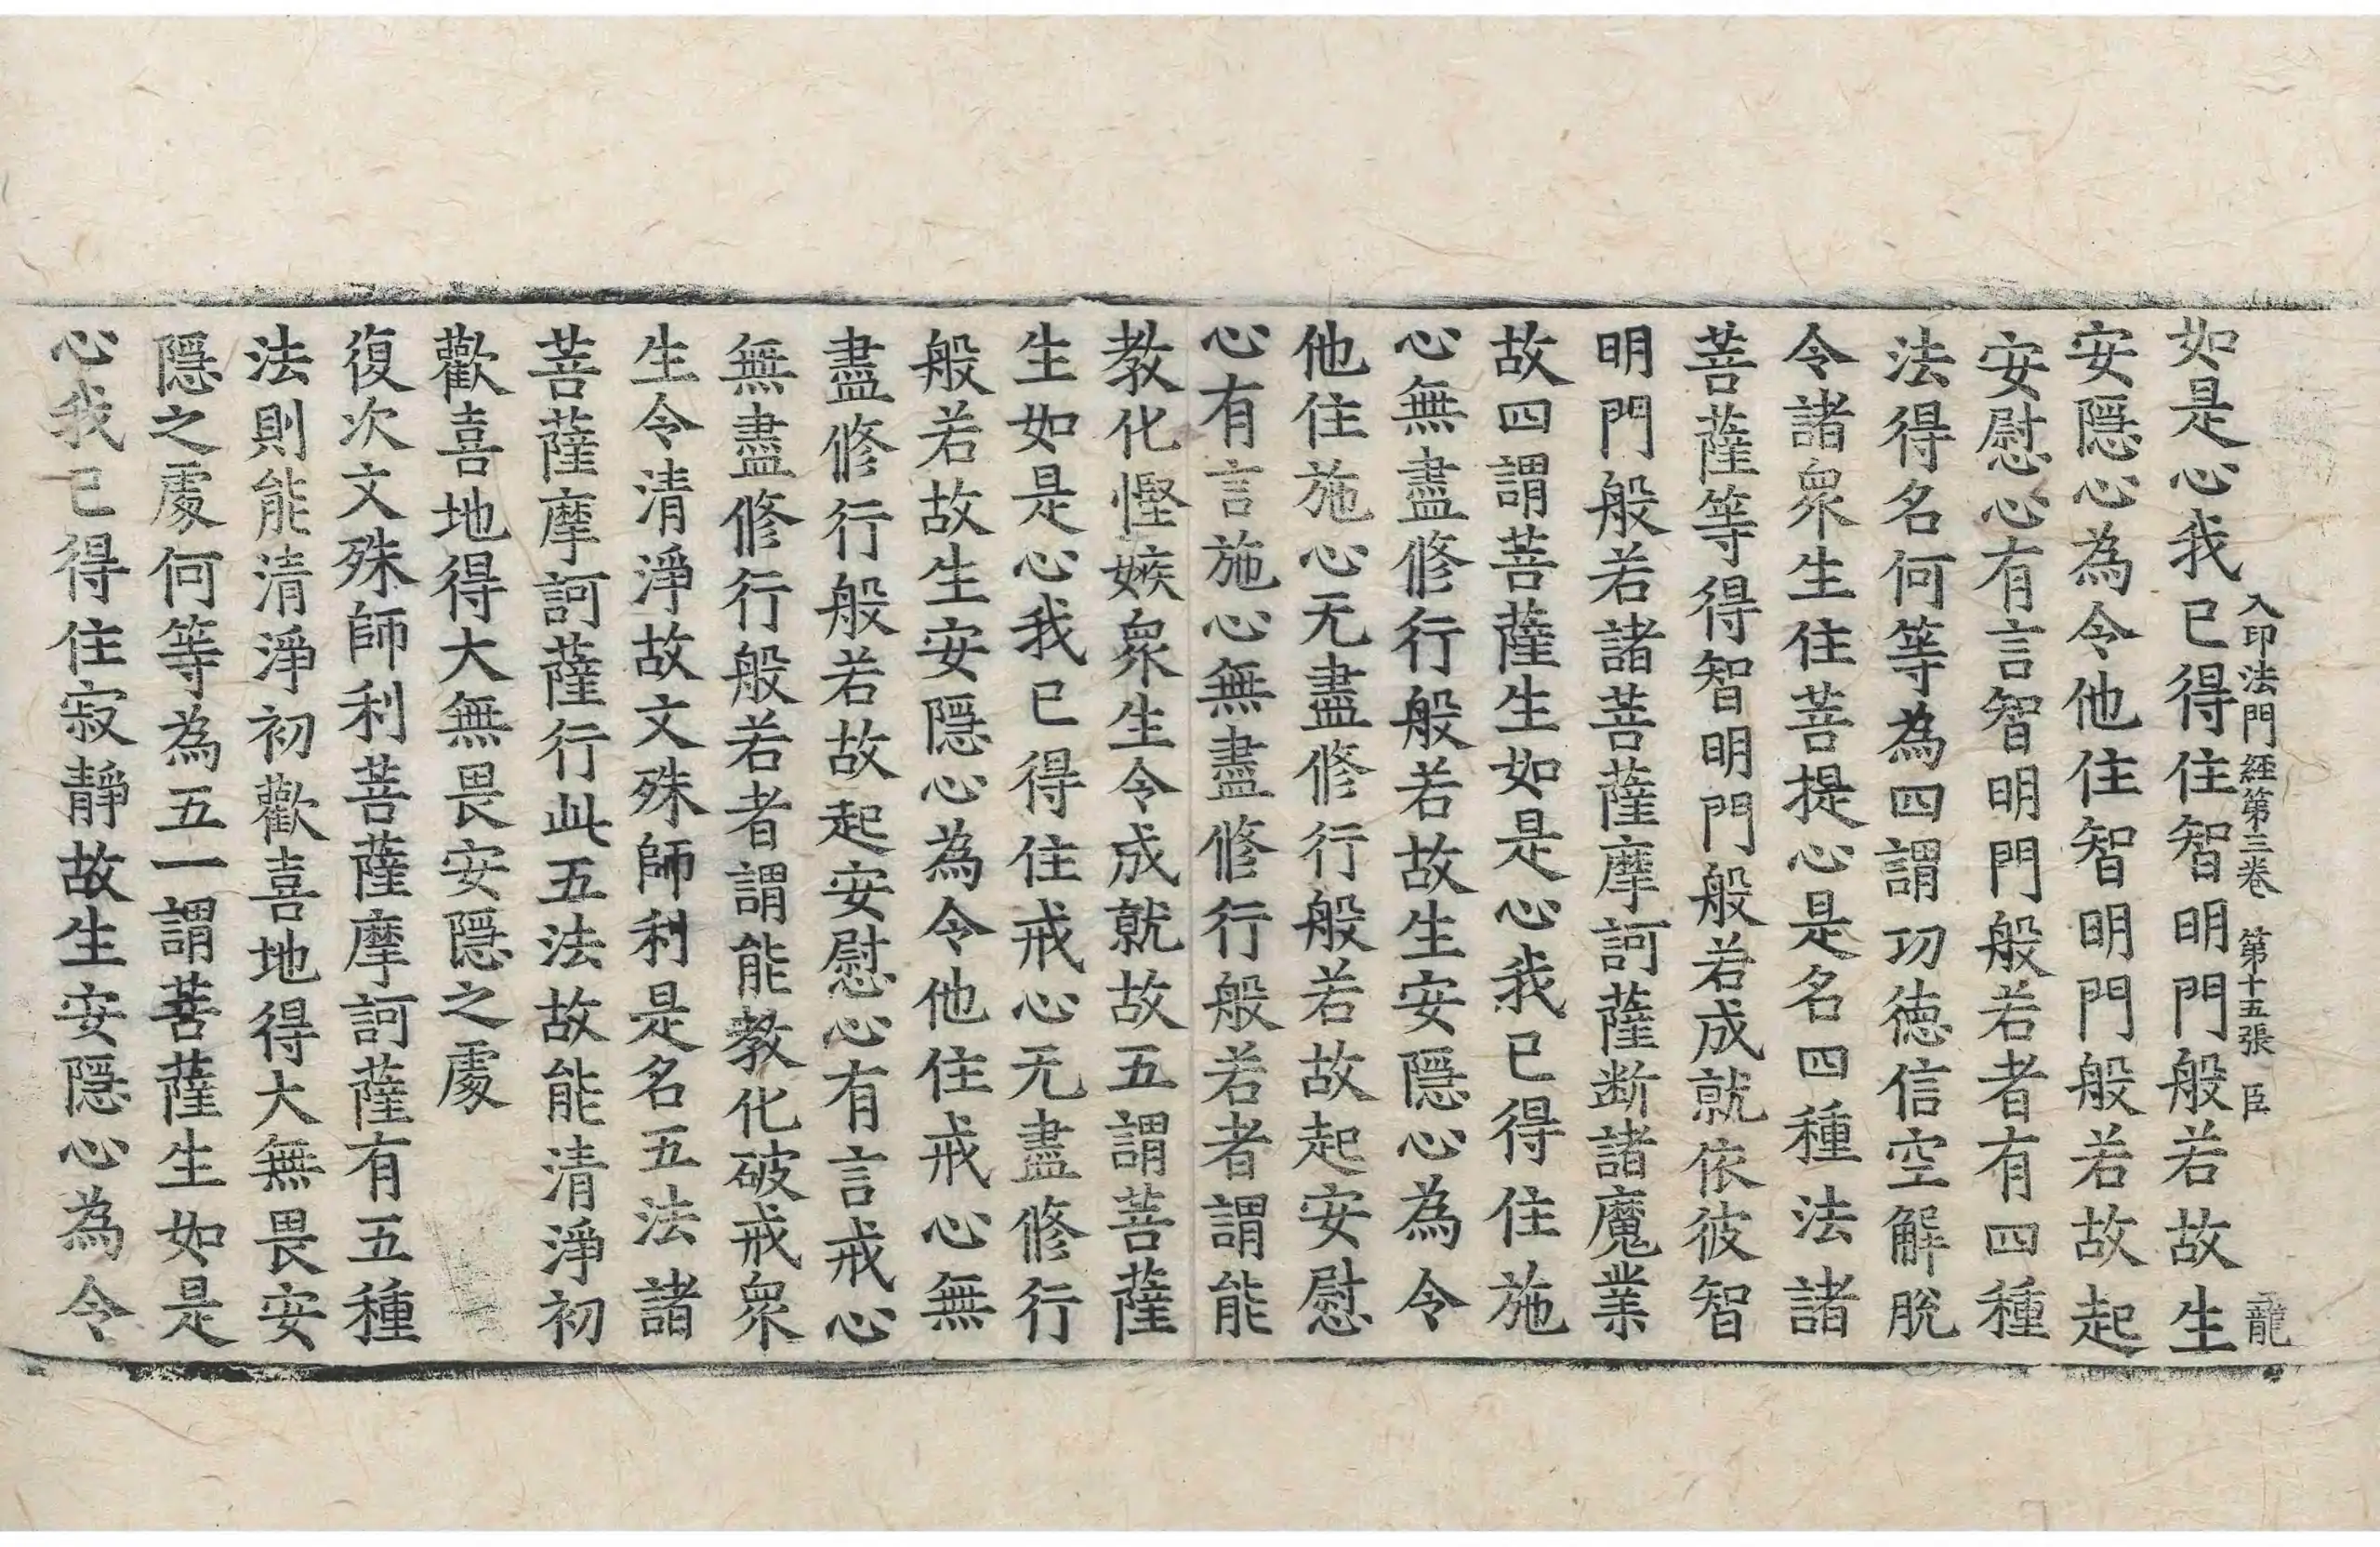 如是心我已得住智明門般若故生
入印法門經第三卷 第十五張 臣 龍
安隱心為令他住智明門般若故起
安慰心有言智明門般若者有四種
法得名何等為四謂功德信空解脫
令諸衆生住菩提心是名四種法諸
菩薩等得智明門般若成就依彼智
明門般若諸菩薩摩訶薩断諸魔業
故四謂菩薩生如是心我已得住施
心無盡修行般若故生安隱心為令
他住施心无盡修行般若故起安慰
心有言施心無盡修行般若者謂能
教化慳嫉衆生令成就故五謂菩薩
生如是心我已得住戒心无盡修行
般若故生安隱心為令他住戒心無
盡修行般若故起安慰心有言戒心
無盡修行般若者謂能教化破戒衆
生令清淨故文殊師利是名五法諸
菩薩摩訶薩行此五法故能清淨初
歡喜地得大無畏安隱之處
復次文殊師利菩薩摩訶薩有五種
法則能清淨初歡喜地得大無畏安
隱之處何等為五一謂菩薩生如是
心我已得住寂靜故生安隱心為令